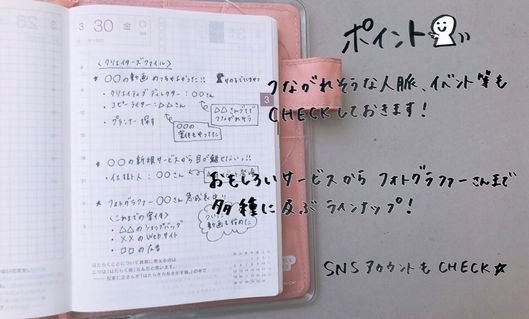 3 30 金
<クリエイターズファイル>
* ○○の動画 めっちゃよかった!!
・クリエイティブディレクター:○○さん
・コピーライター:△△さん
△△さんづてで
つながれそう
・プランナー 探す
○○の
* ○○の新規サービスから目が離せないっ!!
・仕掛け人:○○さん
* フォトグラファー ○○さん
<これまでの実績>
・△△のショップバッグ
・××のWebサイト
・□□の広告
3
ポイント
つながれそうな人脈、イベント等も
CHECKしておきます!
おもしろいサービスから フォトグラファーさんまで
多種に及ぶラインナップ!
SNSアカウントもCHECK☆